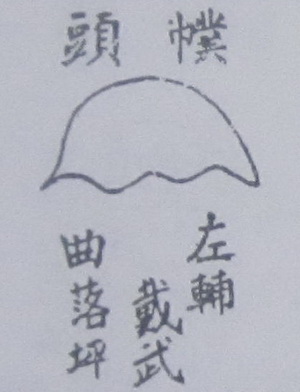 幞頭
左輔
戴武
曲落坪